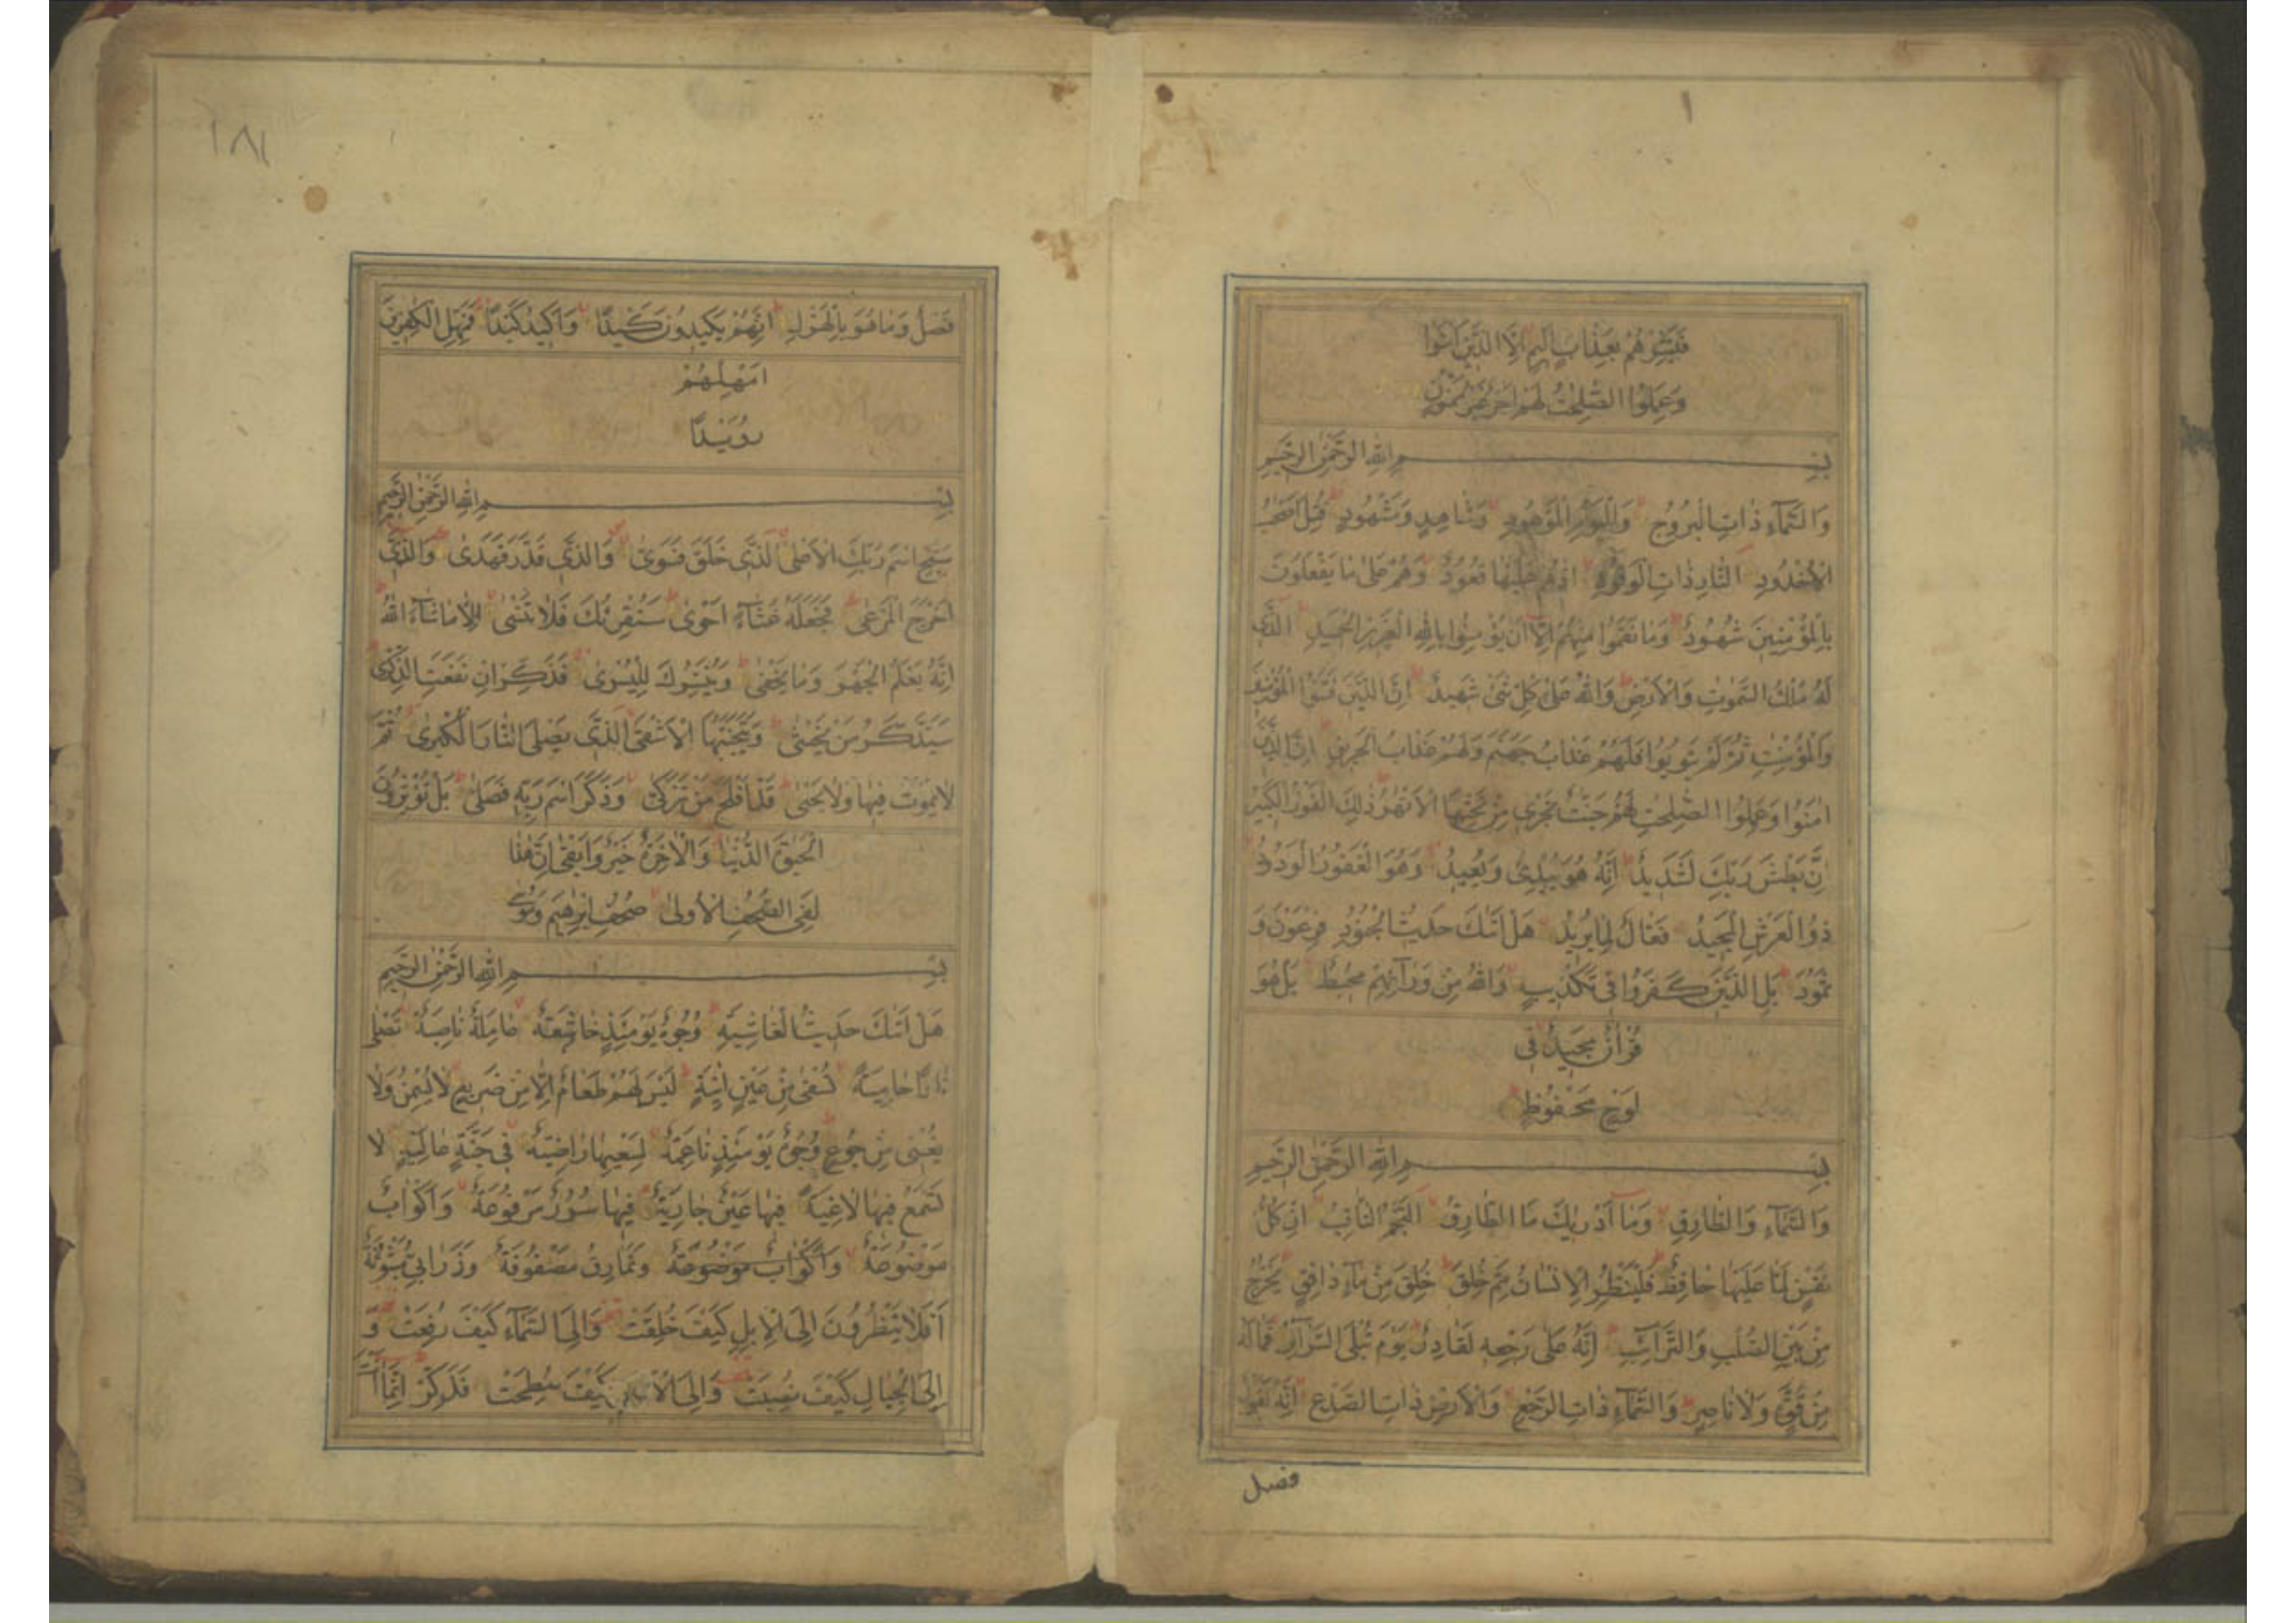 ١
فَبَشِّرْهُمْ بِعَذَابٍ اَلِيمٍ اِلَّا الَّذِينَ اٰمَنُوا
وَعَمِلُوا الصّٰلِحٰتِ لَهُمْ اَجْرٌ غَيْرُ مَمْنُونٍ
بِسْمِ اللّٰهِ الرَّحْمٰنِ الرَّحِيمِ
وَالسَّمَآءِ ذَاتِ الْبُرُوجِ وَالْيَوْمِ الْمَوْعُودِ وَشَاهِدٍ وَمَشْهُودٍ قُتِلَ اَصْحٰبُ
الْاُخْدُودِ النَّارِ ذَاتِ الْوَقُودِ اِذْ هُمْ عَلَيْهَا قُعُودٌ وَهُمْ عَلٰى مَا يَفْعَلُونَ
بِالْمُؤْمِنِينَ شُهُودٌ وَمَا نَقَمُوا مِنْهُمْ اِلَّا اَنْ يُؤْمِنُوا بِاللّٰهِ الْعَزِيزِ الْحَمِيدِ الَّذِى
لَهُ مُلْكُ السَّمٰوٰتِ وَالْاَرْضِ وَاللّٰهُ عَلٰى كُلِّ شَىْءٍ شَهِيدٌ اِنَّ الَّذِينَ فَتَنُوا الْمُؤْمِنِينَ
وَالْمُؤْمِنٰتِ ثُمَّ لَمْ يَتُوبُوا فَلَهُمْ عَذَابُ جَهَنَّمَ وَلَهُمْ عَذَابُ الْحَرِيقِ اِنَّ الَّذِينَ
اٰمَنُوا وَعَمِلُوا الصّٰلِحٰتِ لَهُمْ جَنّٰتٌ تَجْرِى مِنْ تَحْتِهَا الْاَنْهٰرُ ذٰلِكَ الْفَوْزُ الْكَبِيرُ
اِنَّ بَطْشَ رَبِّكَ لَشَدِيدٌ اِنَّهُ هُوَ يُبْدِئُ وَيُعِيدُ وَهُوَ الْغَفُورُ الْوَدُودُ
ذُو الْعَرْشِ الْمَجِيدُ فَعَّالٌ لِمَا يُرِيدُ هَلْ اَتٰىكَ حَدِيثُ الْجُنُودِ فِرْعَوْنَ وَ
ثَمُودَ بَلِ الَّذِينَ كَفَرُوا فِى تَكْذِيبٍ وَاللّٰهُ مِنْ وَرَآئِهِمْ مُحِيطٌ بَلْ هُوَ
قُرْاٰنٌ مَجِيدٌ فِى
لَوْحٍ مَحْفُوظٍ
بِسْمِ اللّٰهِ الرَّحْمٰنِ الرَّحِيمِ
وَالسَّمَآءِ وَالطَّارِقِ وَمَآ اَدْرٰيكَ مَا الطَّارِقُ النَّجْمُ الثَّاقِبُ اِنْ كُلُّ
نَفْسٍ لَمَّا عَلَيْهَا حَافِظٌ فَلْيَنْظُرِ الْاِنْسَانُ مِمَّ خُلِقَ خُلِقَ مِنْ مَآءٍ دَافِقٍ يَخْرُجُ
مِنْ بَيْنِ الصُّلْبِ وَالتَّرَآئِبِ اِنَّهُ عَلٰى رَجْعِهِ لَقَادِرٌ يَوْمَ تُبْلَى السَّرَآئِرُ فَمَا لَهُ
مِنْ قُوَّةٍ وَلَا نَاصِرٍ وَالسَّمَآءِ ذَاتِ الرَّجْعِ وَالْاَرْضِ ذَاتِ الصَّدْعِ اِنَّهُ لَقَوْلٌ
فصل
١٨١
فَصْلٌ وَمَا هُوَ بِالْهَزْلِ اِنَّهُمْ يَكِيدُونَ كَيْدًا وَاَكِيدُ كَيْدًا فَمَهِّلِ الْكٰفِرِينَ
اَمْهِلْهُمْ
رُوَيْدًا
بِسْمِ اللّٰهِ الرَّحْمٰنِ الرَّحِيمِ
سَبِّحِ اسْمَ رَبِّكَ الْاَعْلَى الَّذِى خَلَقَ فَسَوّٰى وَالَّذِى قَدَّرَ فَهَدٰى وَالَّذِى
اَخْرَجَ الْمَرْعٰى فَجَعَلَهُ غُثَآءً اَحْوٰى سَنُقْرِئُكَ فَلَا تَنْسٰى اِلَّا مَا شَآءَ اللّٰهُ
اِنَّهُ يَعْلَمُ الْجَهْرَ وَمَا يَخْفٰى وَنُيَسِّرُكَ لِلْيُسْرٰى فَذَكِّرْ اِنْ نَفَعَتِ الذِّكْرٰى
سَيَذَّكَّرُ مَنْ يَخْشٰى وَيَتَجَنَّبُهَا الْاَشْقَى الَّذِى يَصْلَى النَّارَ الْكُبْرٰى ثُمَّ
لَا يَمُوتُ فِيهَا وَلَا يَحْيٰى قَدْ اَفْلَحَ مَنْ تَزَكّٰى وَذَكَرَ اسْمَ رَبِّهِ فَصَلّٰى بَلْ تُؤْثِرُونَ
الْحَيٰوةَ الدُّنْيَا وَالْاٰخِرَةُ خَيْرٌ وَاَبْقٰى اِنَّ هٰذَا
لَفِى الصُّحُفِ الْاُولٰى صُحُفِ اِبْرٰهِيمَ وَمُوسٰى
بِسْمِ اللّٰهِ الرَّحْمٰنِ الرَّحِيمِ
هَلْ اَتٰىكَ حَدِيثُ الْغَاشِيَةِ وُجُوهٌ يَوْمَئِذٍ خَاشِعَةٌ عَامِلَةٌ نَاصِبَةٌ تَصْلٰى
نَارًا حَامِيَةً تُسْقٰى مِنْ عَيْنٍ اٰنِيَةٍ لَيْسَ لَهُمْ طَعَامٌ اِلَّا مِنْ ضَرِيعٍ لَا يُسْمِنُ وَلَا
يُغْنِى مِنْ جُوعٍ وُجُوهٌ يَوْمَئِذٍ نَاعِمَةٌ لِسَعْيِهَا رَاضِيَةٌ فِى جَنَّةٍ عَالِيَةٍ لَا
تَسْمَعُ فِيهَا لَاغِيَةً فِيهَا عَيْنٌ جَارِيَةٌ فِيهَا سُرُرٌ مَرْفُوعَةٌ وَاَكْوَابٌ
مَوْضُوعَةٌ وَاَكْوَابٌ مَوْضُوعَةٌ وَنَمَارِقُ مَصْفُوفَةٌ وَزَرَابِىُّ مَبْثُوثَةٌ
اَفَلَا يَنْظُرُونَ اِلَى الْاِبِلِ كَيْفَ خُلِقَتْ وَاِلَى السَّمَآءِ كَيْفَ رُفِعَتْ وَ
اِلَى الْجِبَالِ كَيْفَ نُصِبَتْ وَاِلَى الْاَرْضِ كَيْفَ سُطِحَتْ فَذَكِّرْ اِنَّمَا